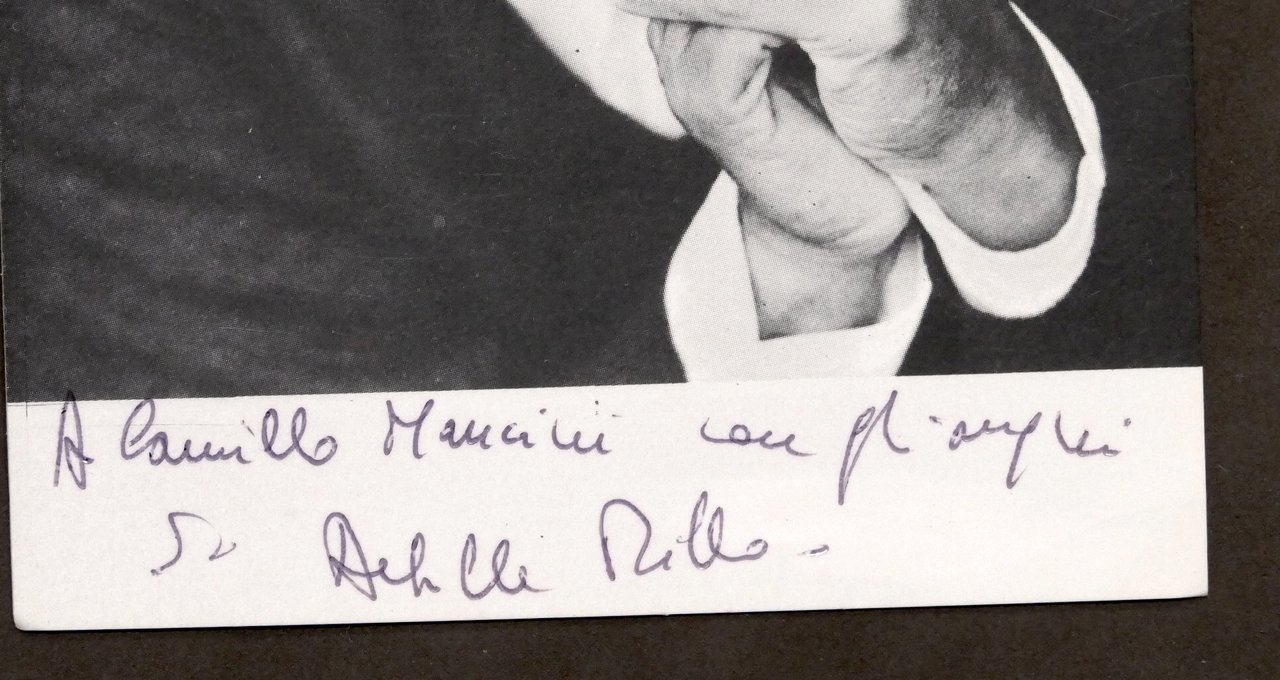 A Camillo Mancini con gli auguri
di Achille Millo.